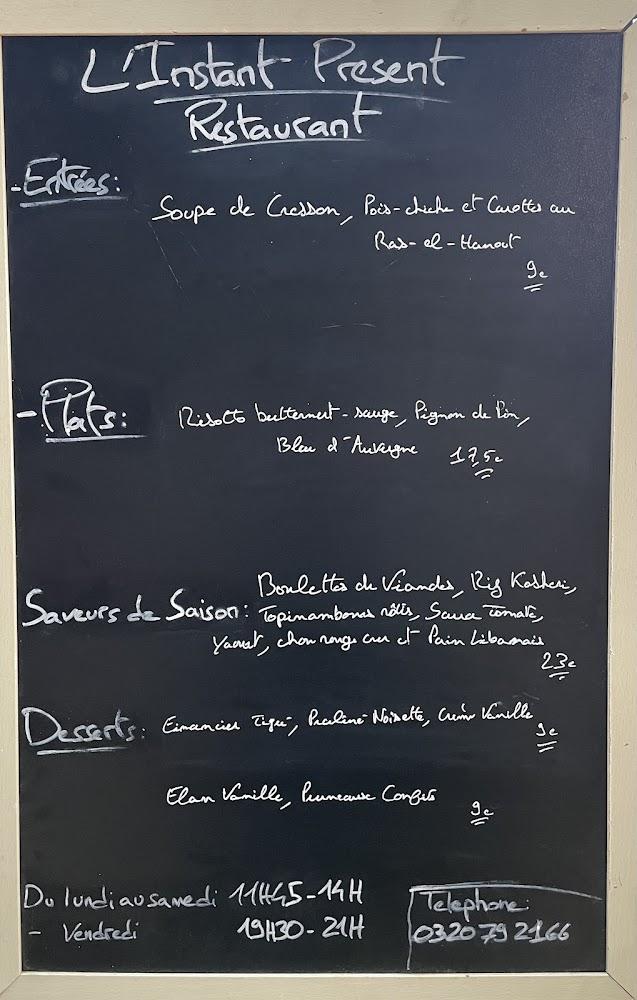 L'Instant Present
Restaurant
- Entrées:
Soupe de Cresson, Pois-chiche et Carottes au
Ras-el-Hanout
9€
- Plats:
Risotto butternut-sauge, Pignon de Pin,
Bleu d'Auvergne 17,5€
Boulettes de Viandes, Riz Kasheri,
Saveurs de Saison: Topinambours rôtis, Sauce Tomate,
Yaourt, chou rouge cru et Pain Libanais
23€
Desserts: Financier Tigré, Praliné Noisette, Crème Vanille
9€
Flan Vanille, Pruneaux Confits 9€
Du lundi au samedi 11H45-14H
- Vendredi 19H30-21H
Telephone:
0320792166